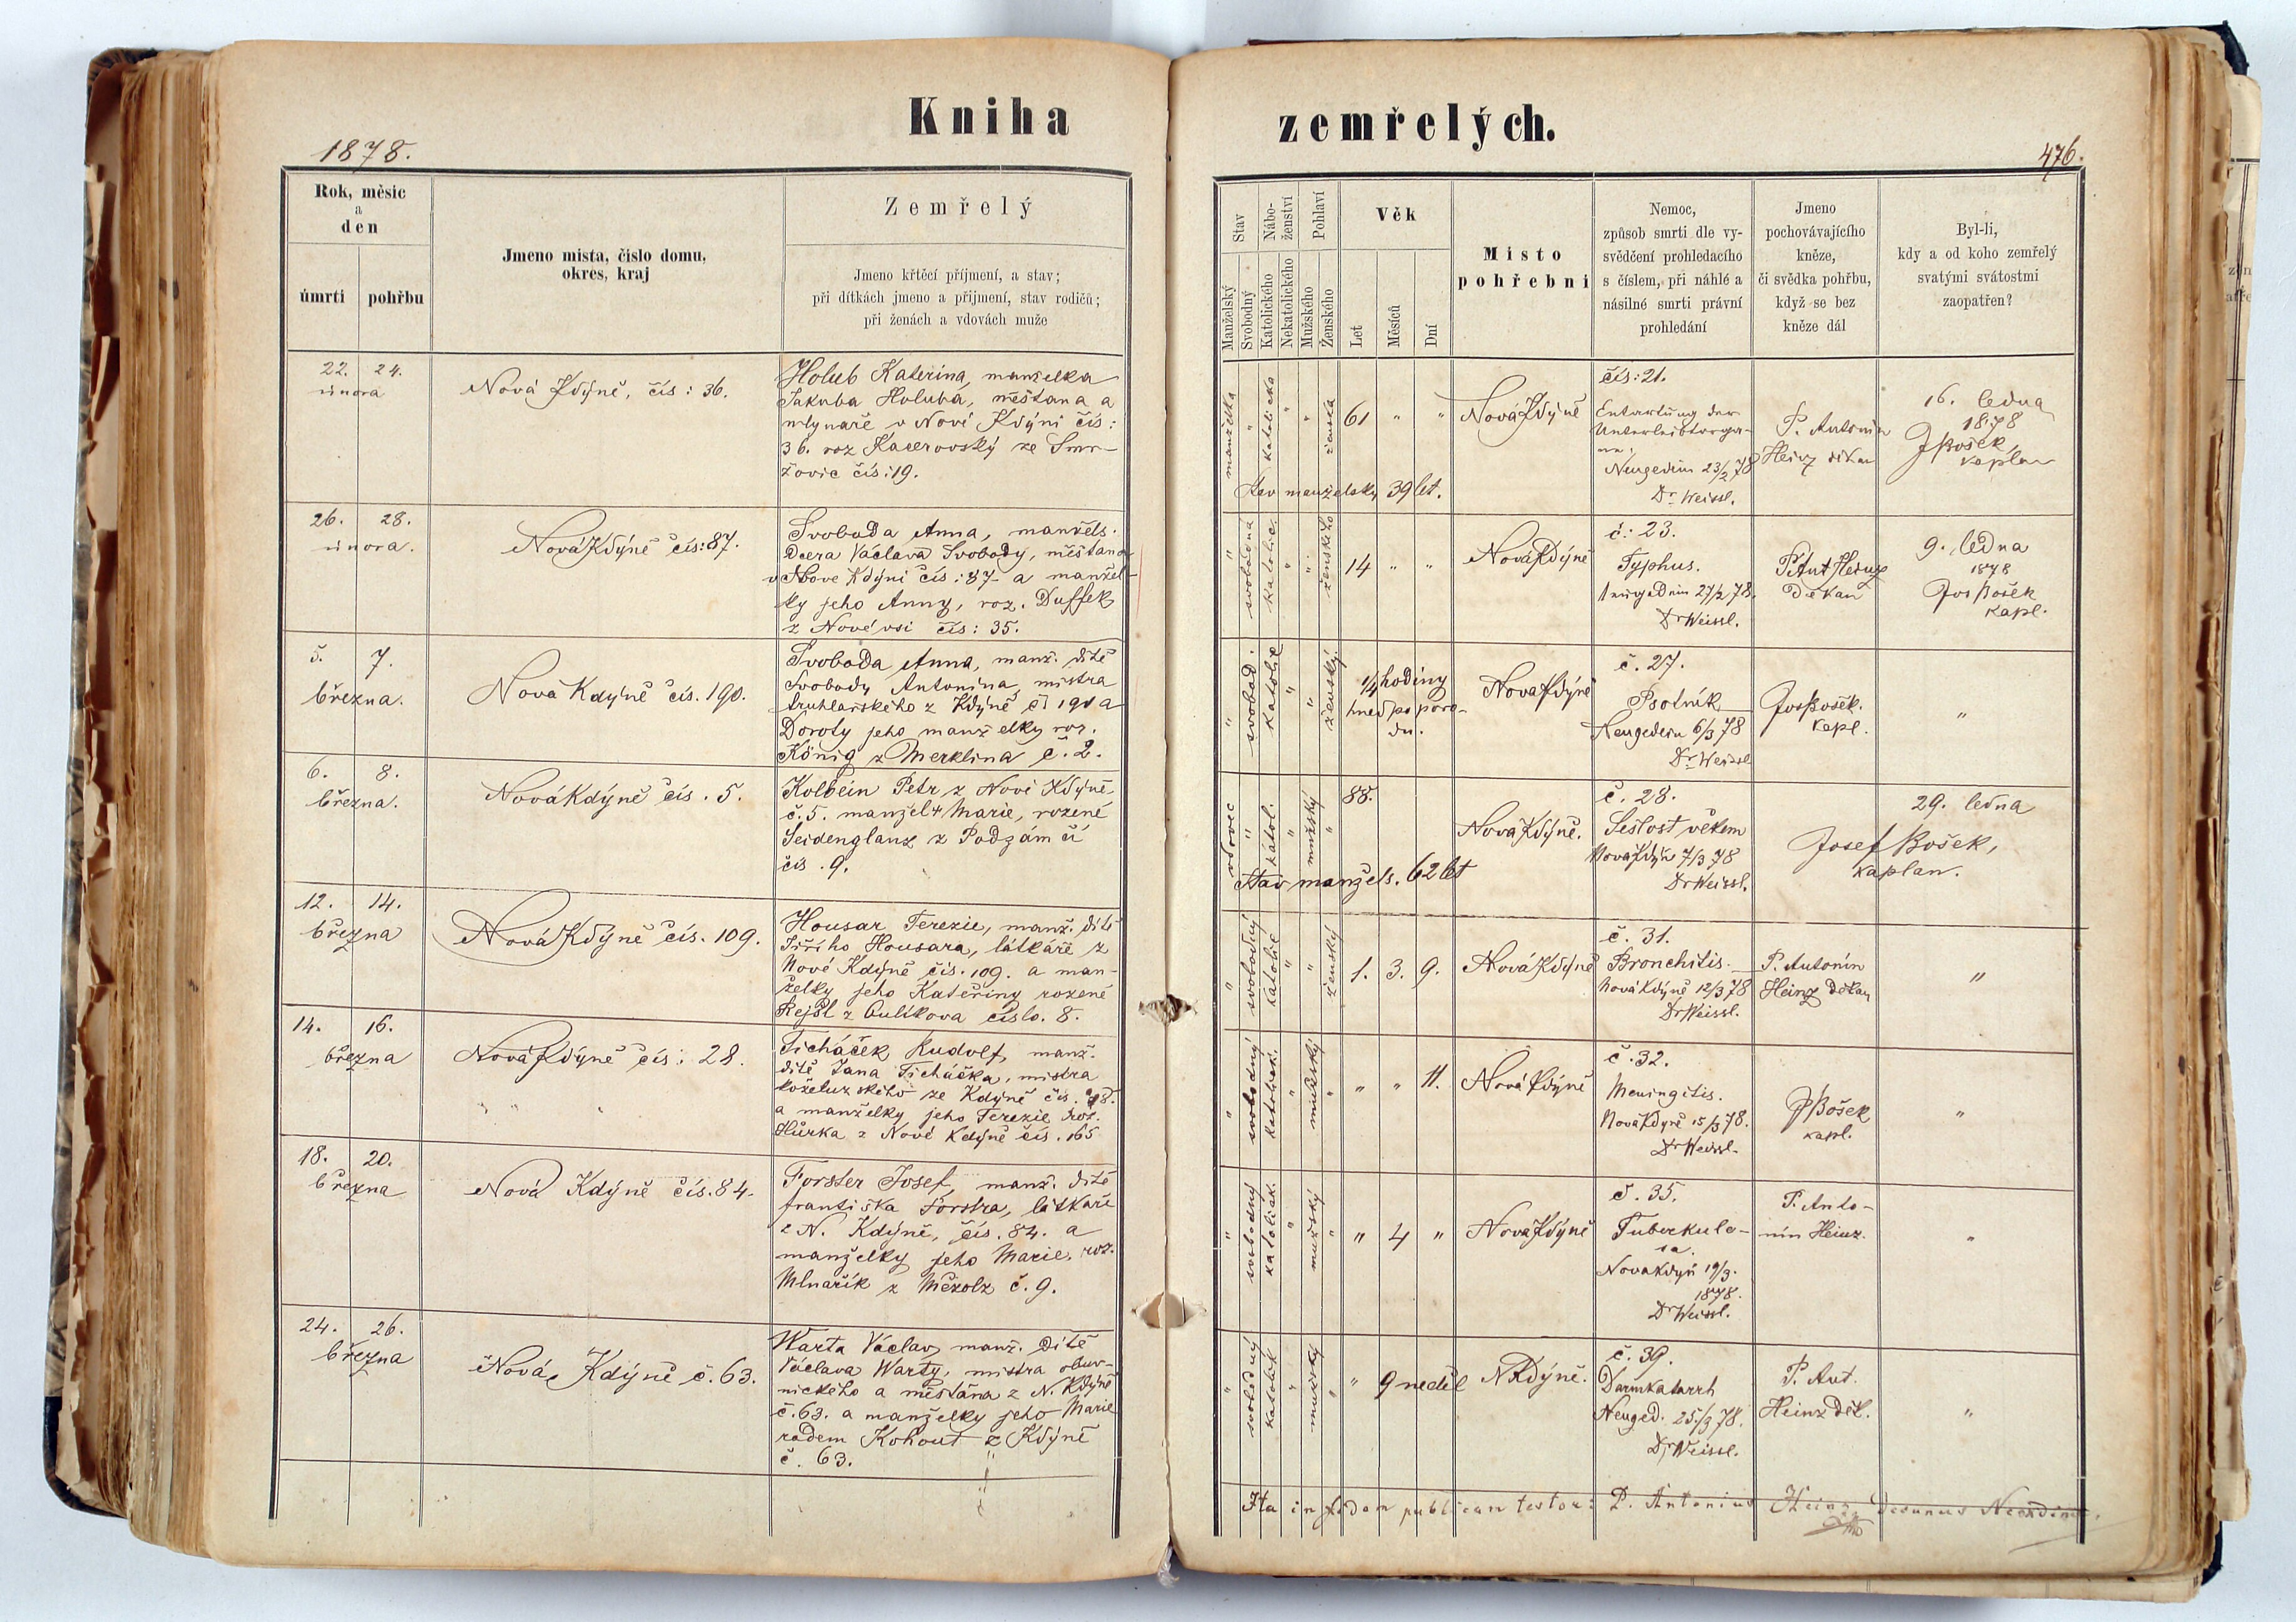 Kniha
1878.
Rok, měsíc
a
den
úmrtí
pohřbu
Jmeno místa, číslo domu,
okres, kraj
Zemřelý
Jmeno křtěcí příjmení, a stav;
při dítkách jmeno a příjmení, stav rodičů;
při ženách a vdovách muže
22. 24.
února
Nová Kdýně, čís: 36.
Holub Kateřina, manželka
Jakuba Holuba, měšťana a
mlynaře v Nové Kdýni čís:
36. roz Kacerovský ze Smr-
žovic čís: 19.
26. 28.
února.
Nová Kdýně čís: 87.
Svoboda Anna, manžels.
dcera Václava Svobody, měšťana
v Nove Kdýni čís: 87 a manžel-
ky jeho Anny, roz. Duffek
z Nové vsi čís: 35.
5. 7.
března.
Nová Kdýně čís. 190.
Svoboda Anna, manž. dítě
Svobody Antonína, mistra
truhlařského z Kdýně čí 190 a
Doroty jeho manželky roz.
König z Merklina č. 2.
6. 8.
března.
Nová Kdýně čís. 5.
Kolbein Petr z Nové Kdýně
č. 5. manžel + Marie, rozené
Seidenglanz z Podzámčí
čís. 9.
12. 14.
března
Nová Kdýně čís. 109.
Housar Terezie, manž. dítě
Jiřího Housara, látkáře z
Nové Kdýně čís. 109. a man-
želky jeho Kateřiny rozené
Rejšl z Bulíkova číslo. 8.
14. 16.
března
Nová Kdýně čís: 28.
Ticháček Rudolf, manž.
dítě Jana Ticháčka, mistra
koželuzského ze Kdýně čís. 28.
a manželky jeho Terezie roz.
Hůrka z Nové Kdýně čís. 165
18. 20.
března
Nová Kdýně čís. 84.
Forster Josef, manž. dítě
Františka Forstra, látkaře
z N. Kdýně, čís. 84. a
manželky jeho Marie, roz.
Mlnařík z Mězholz č. 9.
24. 26.
března
Nová Kdýně č. 63.
Warta Václav, manž. dítě
Václava Warty, mistra obuv-
nického a měšťána z N. Kdýně
č. 63. a manželky jeho Marie
rodem Kohout z Kdýně
č. 63.
zemřelých.
476.
Stav
Nábo-
ženství
Pohlaví
Věk
Manželský
Svobodný
Katolického
Nekatolického
Mužského
Ženského
Let
Měsíců
Dní
Místo
pohřební
Nemoc,
způsob smrti dle vy-
svědčení prohledacího
s číslem, při náhlé a
násilné smrti právní
prohledání
Jmeno
pochovávajícího
kněze,
či svědka pohřbu,
když se bez
kněze dál
Byl-li,
kdy a od koho zemřelý
svatými svátostmi
zaopatřen?
manželka
"
katolicka
"
"
ženská
61 " "
Nová Kdýně
čís: 21.
Entartung der
Unterleibsorga-
ne.
Neugedein 23/2 78
Dr. Weissl.
P. Antonín
Heinz děkan
16. ledna
1878
J Bošek,
kaplan
Stav manželský 39 let.
"
svobodná
katolic.
"
"
ženského
14 " "
Nová Kdýně
č: 23.
Typhus.
Neugedein 27/2 78.
Dr Weissl.
P. Ant Heinz
děkan
9. ledna
1878
Jos Bošek
kapl.
"
svobod.
katolic
"
"
ženský.
1/4 hodiny
hned po poro-
du.
Nová Kdýně
č. 27.
Psotník
Neugedein 6/3 78
Dr. Weissl
Jos Bošek.
kapl.
"
vdovec
"
katol.
"
mužský
"
88.
Nová Kdýně.
č. 28.
Sešlost věkem
Nová Kdýň 7/3 78
Dr Weissl.
Josef Bošek,
kaplan.
29. ledna
Stav manžels. 62 let
"
svobodný
katolic
"
"
ženský
1. 3. 9.
Nová Kdýně
č. 31.
Bronchitis.
Nová Kdýně 12/3 78
Dr Weissl.
P. Antonín
Heinz děkan
"
"
svobodný
katolick.
"
mužský
"
" " 11.
Nová Kdýně
č. 32.
Meningitis.
Nová Kdyně 15/3 78.
Dr Weissl.
J Bošek
kapl.
"
"
svobodný
katolick.
"
mužský
"
" 4 "
Nová Kdýně
č. 35.
Tuberkulo-
sa.
Nova Kdyň 19/3.
1878.
Dr Weissl.
P. Anto-
nín Heinz.
"
"
svobodný
katolick
"
mužský
"
" 9 neděl
N Kdýně.
č. 39.
Darmkatarrh
Neuged. 25/3 78.
Dr Weissl.
P. Ant.
Heinz děk.
"
Ita in fidem publicam testor: P. Antonius Heinz decanus